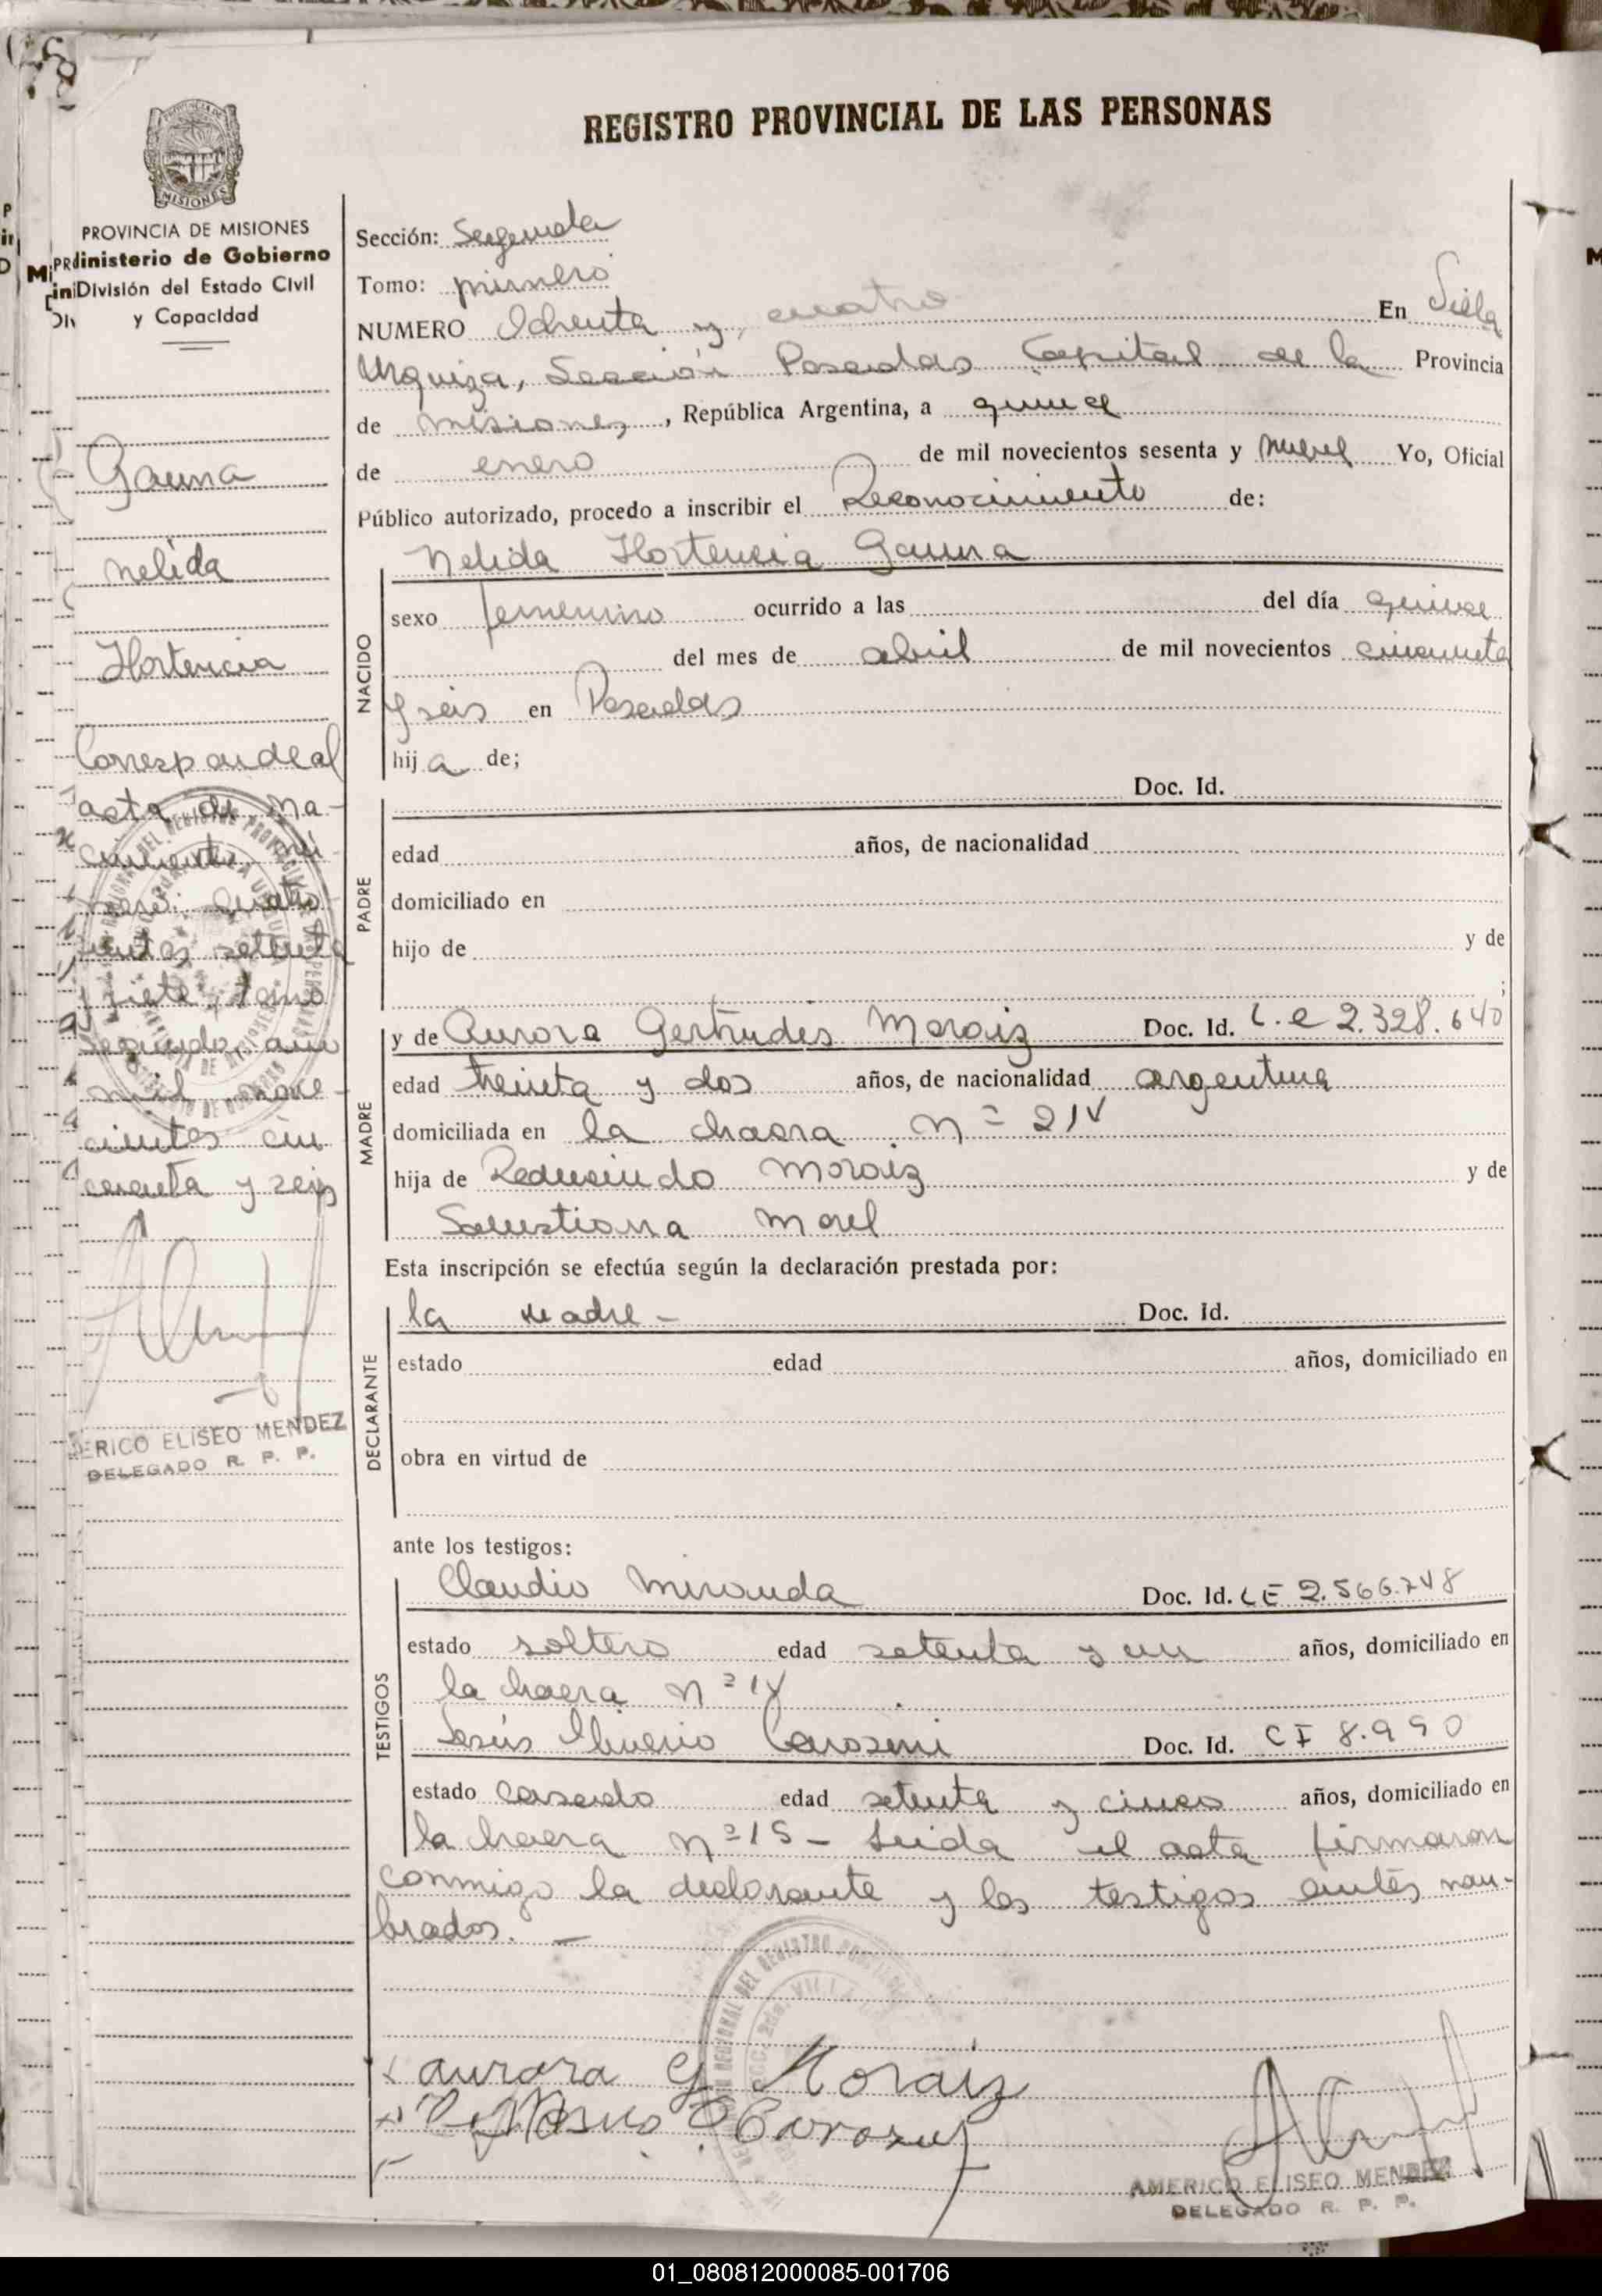 REGISTRO PROVINCIAL DE LAS PERSONAS
PROVINCIA DE MISIONES
Ministerio de Gobierno
División del Estado Civil
y Capacidad
Gauna
Nelida
Hortencia
Corresponde al
acta de Na-
cimiento nú-
mero: cuatro
cientos setenta
y siete, tomo
segundo, año
mil nove-
cientos cin
cuenta y seis
AMERICO ELISEO MENDEZ
DELEGADO R. P. P.
Sección: Segunda
Tomo: primero
NUMERO Ochenta y, cuatro En Villa
Urquiza, Sección Posadas Capital de la Provincia
de Misiones, República Argentina, a quince
de enero de mil novecientos sesenta y nueve Yo, Oficial
Público autorizado, procedo a inscribir el Reconocimiento de:
NACIDO
Nelida Hortencia Gauna
sexo femenino ocurrido a las del día quince
del mes de abril de mil novecientos cincuenta
y seis en Posadas
hija de;
PADRE
Doc. Id.
edad años, de nacionalidad
domiciliado en
hijo de y de
;
MADRE
y de Aurora Gertrudes Moraiz Doc. Id. L.e 2.328.640
edad treinta y dos años, de nacionalidad argentina
domiciliada en la chacra n= 214
hija de Moraiz y de
Salustiana Morel
Esta inscripción se efectúa según la declaración prestada por:
DECLARANTE
la madre - Doc. Id.
estado edad años, domiciliado en
obra en virtud de
ante los testigos:
TESTIGOS
Claudio Miranda Doc. Id. LE 2.566.748
estado soltero edad setenta y un años, domiciliado en
la chacra nº 14
Jesús Doc. Id. CI 8.990
estado casado edad setenta y cinco años, domiciliado en
la chacra nº 15 - Leida el acta firmaron
conmigo la declarante y los testigos antes nom-
brados. -
Aurora G Moraiz
AMERICO ELISEO MENDEZ
DELEGADO R. P. P.
01_080812000085-001706